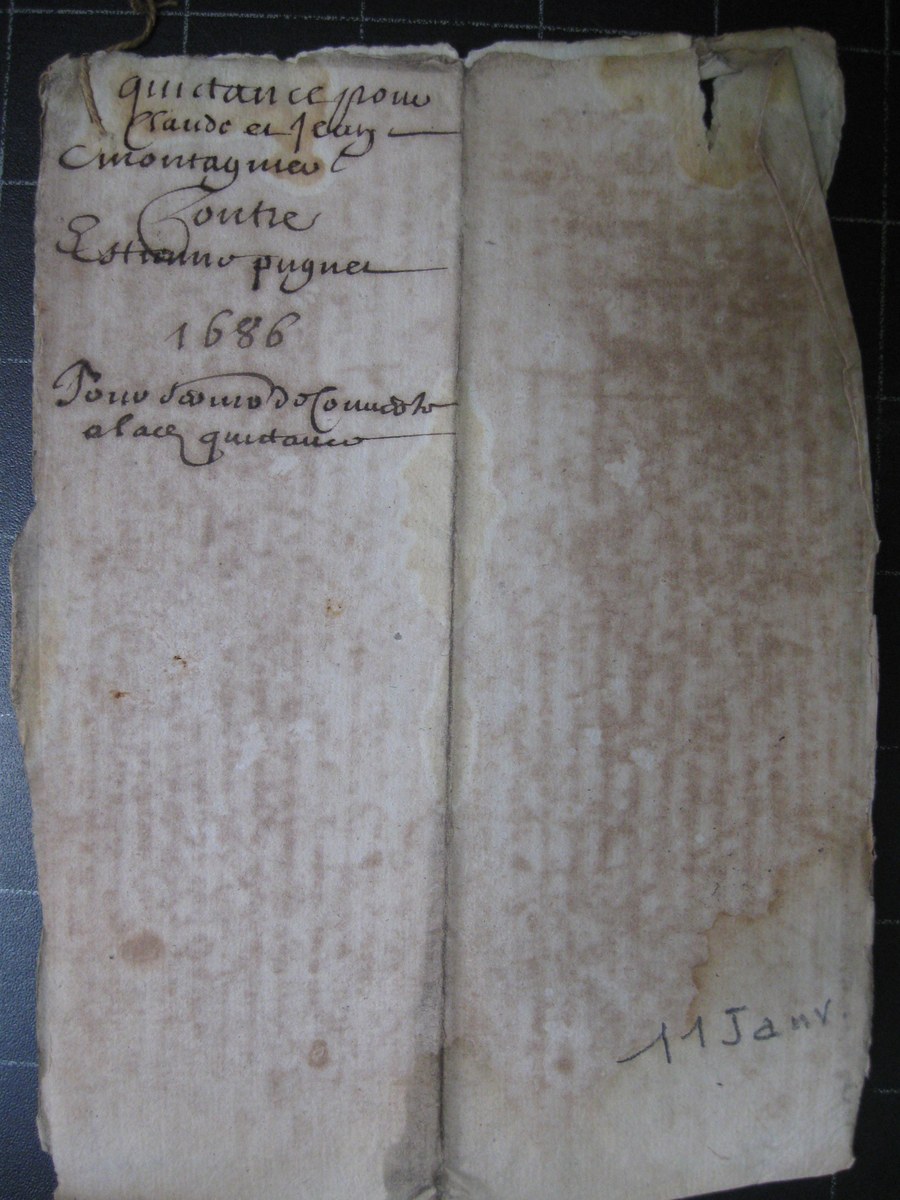 quictance pour
Claude et Jean
montagnier
Contre
Estienne pugnet
1686
Pour
a la quictance
11 Janv.